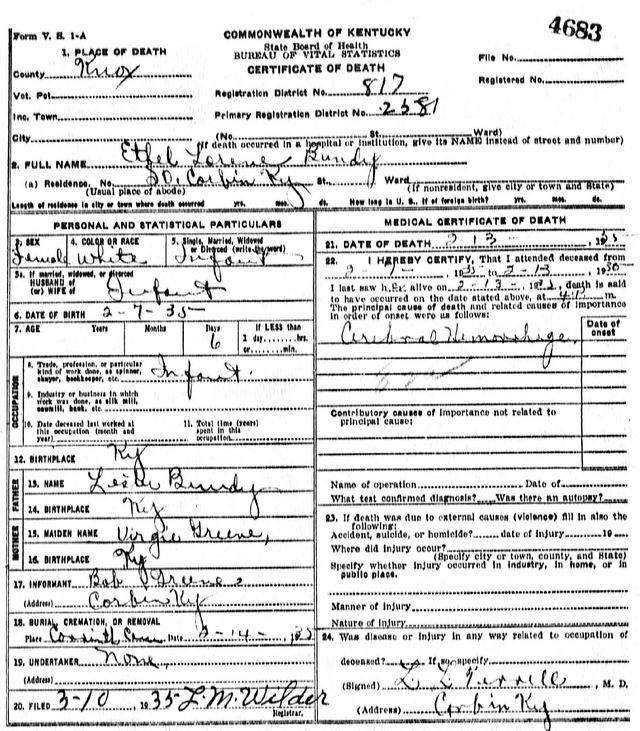 4683
Form V. S. 1-A
COMMONWEALTH OF KENTUCKY
State Board of Health
BUREAU OF VITAL STATISTICS
CERTIFICATE OF DEATH
1. PLACE OF DEATH
County Knox
File No.
Registered No.
Vot. Pct.
Registration District No. 817
Inc. Town
Primary Registration District No. 2581
City (No. St. Ward)
(If death occurred in a hospital or institution, give its NAME instead of street and number)
2. FULL NAME Ethel Lorene Bundy
(a) Residence, No. So. Corbin Ky St. Ward
(Usual place of abode) (If nonresident, give city or town and State)
Length of residence in city or town where death occurred yrs. mos. ds. How long in U. S., if of foreign birth? yrs. mos. ds.
PERSONAL AND STATISTICAL PARTICULARS
3. SEX 4. COLOR OR RACE 5. Single, Married, Widowed or Divorced (write the word)
Female White Infant
5a. If married, widowed, or divorced
HUSBAND of
(or) WIFE of Infant
6. DATE OF BIRTH 2-7-35
7. AGE Years Months Days If LESS than
6 1 day, hrs.
or min.
OCCUPATION
8. Trade, profession, or particular
kind of work done, as spinner,
sawyer, bookkeeper, etc. Infant
9. Industry or business in which
work was done, as silk mill,
sawmill, bank, etc.
10. Date deceased last worked at
this occupation (month and
year)
11. Total time (years)
spent in this
occupation
12. BIRTHPLACE Ky
FATHER
13. NAME Lester Bundy
14. BIRTHPLACE Ky
MOTHER
15. MAIDEN NAME Virgie Greene,
16. BIRTHPLACE Ky
17. INFORMANT Bob Greene
(Address) Corbin Ky
18. BURIAL, CREMATION, OR REMOVAL
Place Date 2-14-
19. UNDERTAKER None
(Address)
20. FILED 3-10, 1935 L. M. Wilder
Registrar.
MEDICAL CERTIFICATE OF DEATH
21. DATE OF DEATH 2 13 - , 1935
22. I HEREBY CERTIFY, That I attended deceased from
2-7-, 1935 to 2-13-, 19
I last saw her alive on 2-13-, 19 , death is said
to have occurred on the date stated above, at m.
The principal cause of death and related causes of importance
in order of onset were as follows:
Date of
onset
Cerebral Hemorrhage
Contributory causes of importance not related to
principal cause:
Name of operation Date of
What test confirmed diagnosis? Was there an autopsy?
23. If death was due to external causes (violence) fill in also the
following:
Accident, suicide, or homicide? date of injury 19
Where did injury occur?
(Specify city or town, county, and State)
Specify whether injury occurred in industry, in home, or in
public place.
Manner of injury
Nature of injury
24. Was disease or injury in any way related to occupation of
deceased? If so, specify
(Signed) L. L. Terrell, M. D.
(Address) Corbin Ky